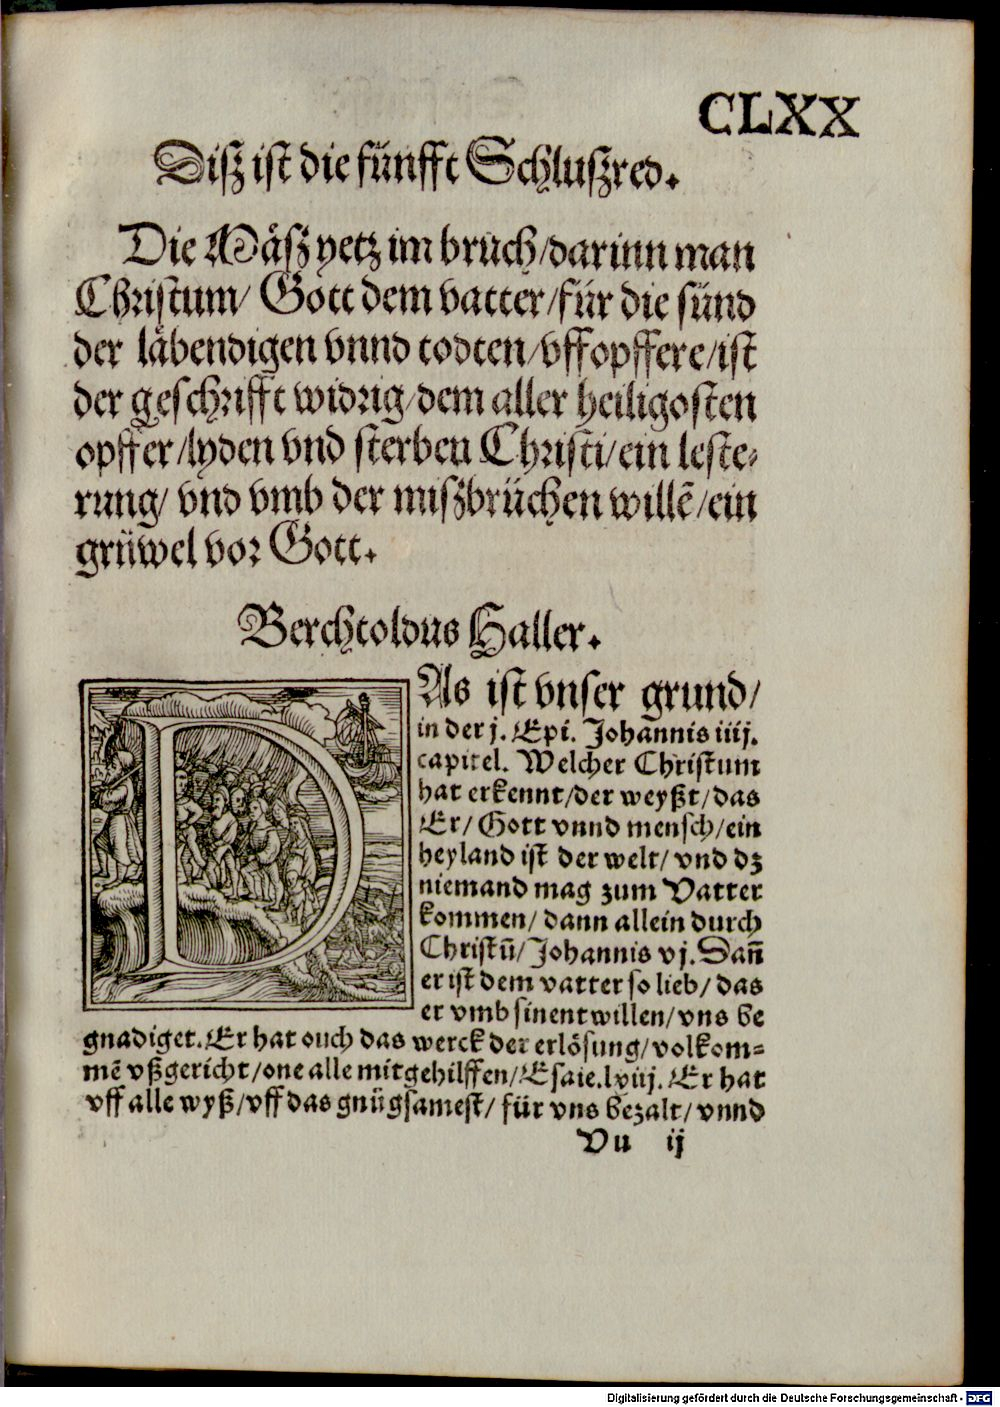 CLXX
Disz ist die fünfft Schluszred.
Die Mäsz yetz im bruch/darinn man
Christum/ Gott dem vatter/für die sünd
der läbendigen vnnd todten/vffopffere/ist
der geschrifft widrig/dem aller heiligosten
opffer/lyden vnd sterben Christi/ein leste-
rung/ vnd vmb der miszbrüchen willē/ein
grüwel vor Gott.
Berchtoldus Haller.
DAs ist vnser grund/
in der j. Epi. Johannis iiij.
capitel. Welcher Christum
hat erkennt/der weyßt/das
Er/ Gott vnnd mensch/ein
heyland ist der welt/ vnd dz
niemand mag zum Vatter
kommen/ dann allein durch
Christū/Johannis vj. Dan̄
er ist dem vatter so lieb/ das
er vmb sinent willen/vns be
gnadiget. Er hat ouch das werck der erlösung/volkom-
mē vßgericht/one alle mitgehilffen/Esaie.lxiij. Er hat
vff alle wyß/vff das gnügsamest/ für vns bezalt/ vnnd
Vu ij
Digitalisierung gefördert durch die Deutsche Forschungsgemeinschaft - DFG